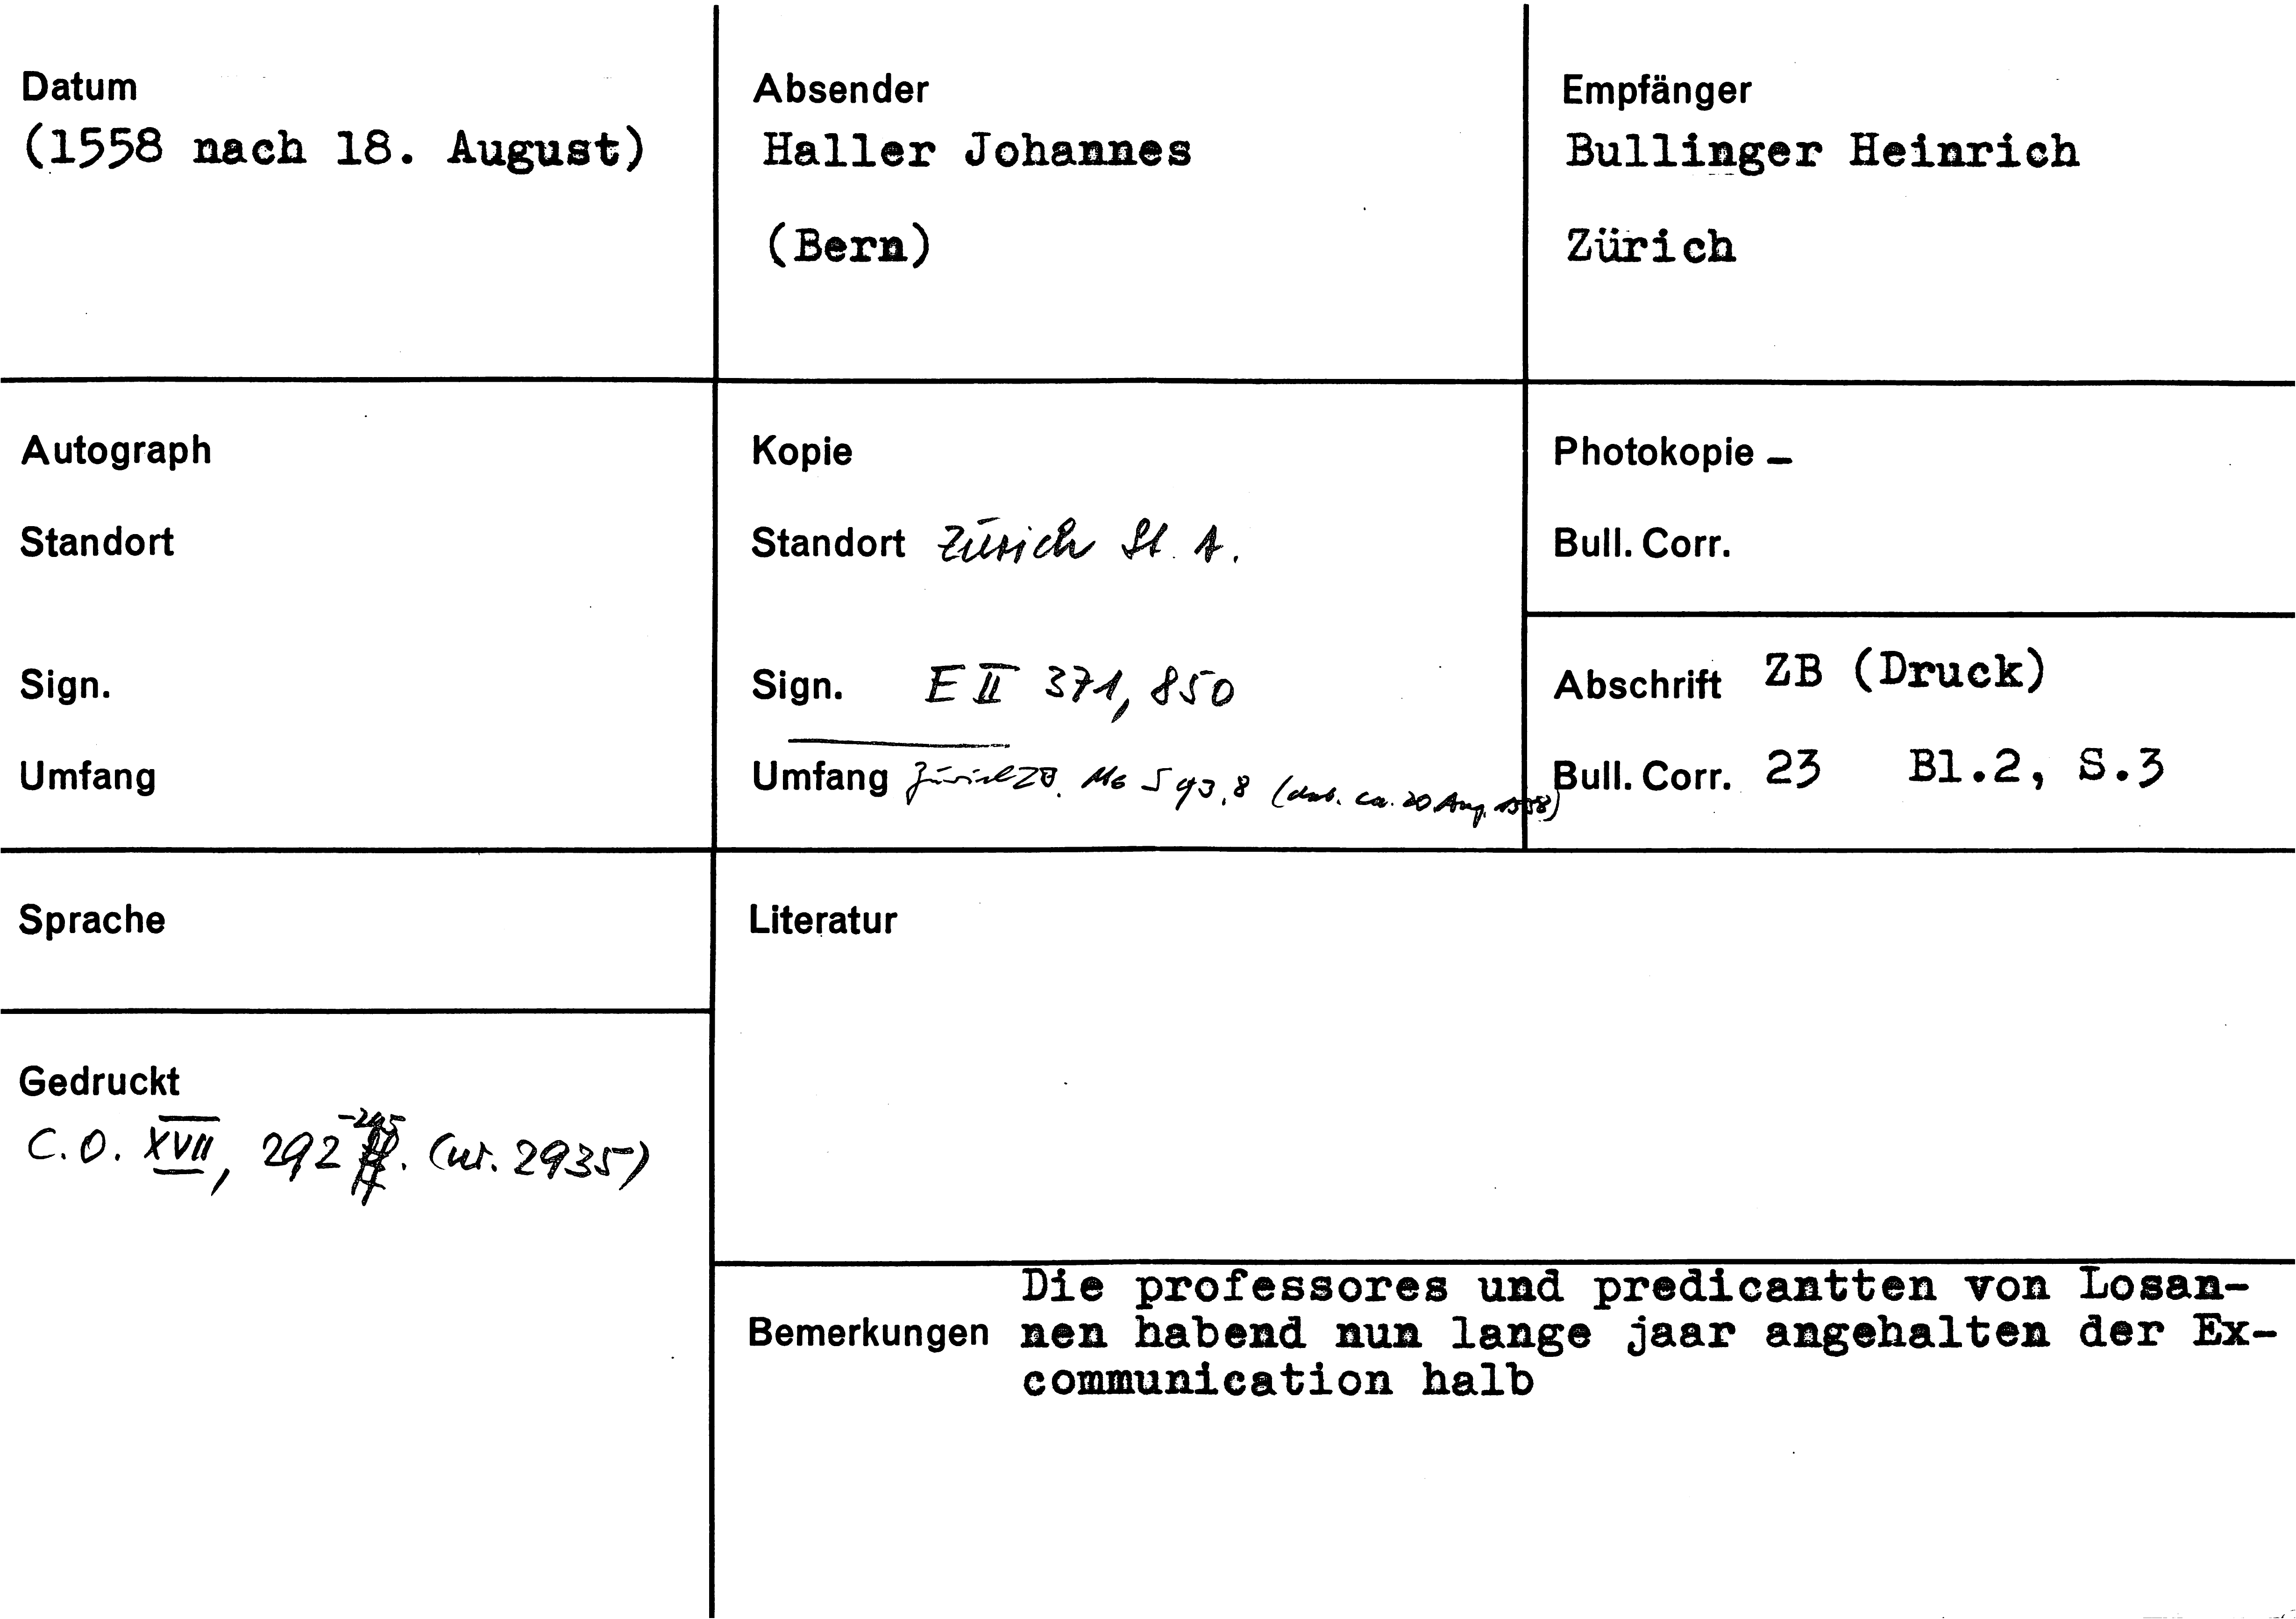 Datum
(1558 nach 18. August)
Absender
Haller Johannes
(Bern)
Empfänger
Bullinger Heinrich
Zürich
Autograph
Standort
Sign.
Umfang
Kopie
Standort Zürich St. A.
Sign. E II 371, 850
Umfang Zürich ZB. Ms S 93, 8 (dat. ca. 20 Aug. 1558)
Photokopie –
Bull. Corr.
Abschrift ZB (Druck)
Bull. Corr. 23 Bl.2, S.3
Sprache
Gedruckt
C.O. XVII, 292-295. (nr. 2935)
Literatur
Bemerkungen
Die professores und predicantten von Losan-
nen habend nun lange jaar angehalten der Ex-
communication halb